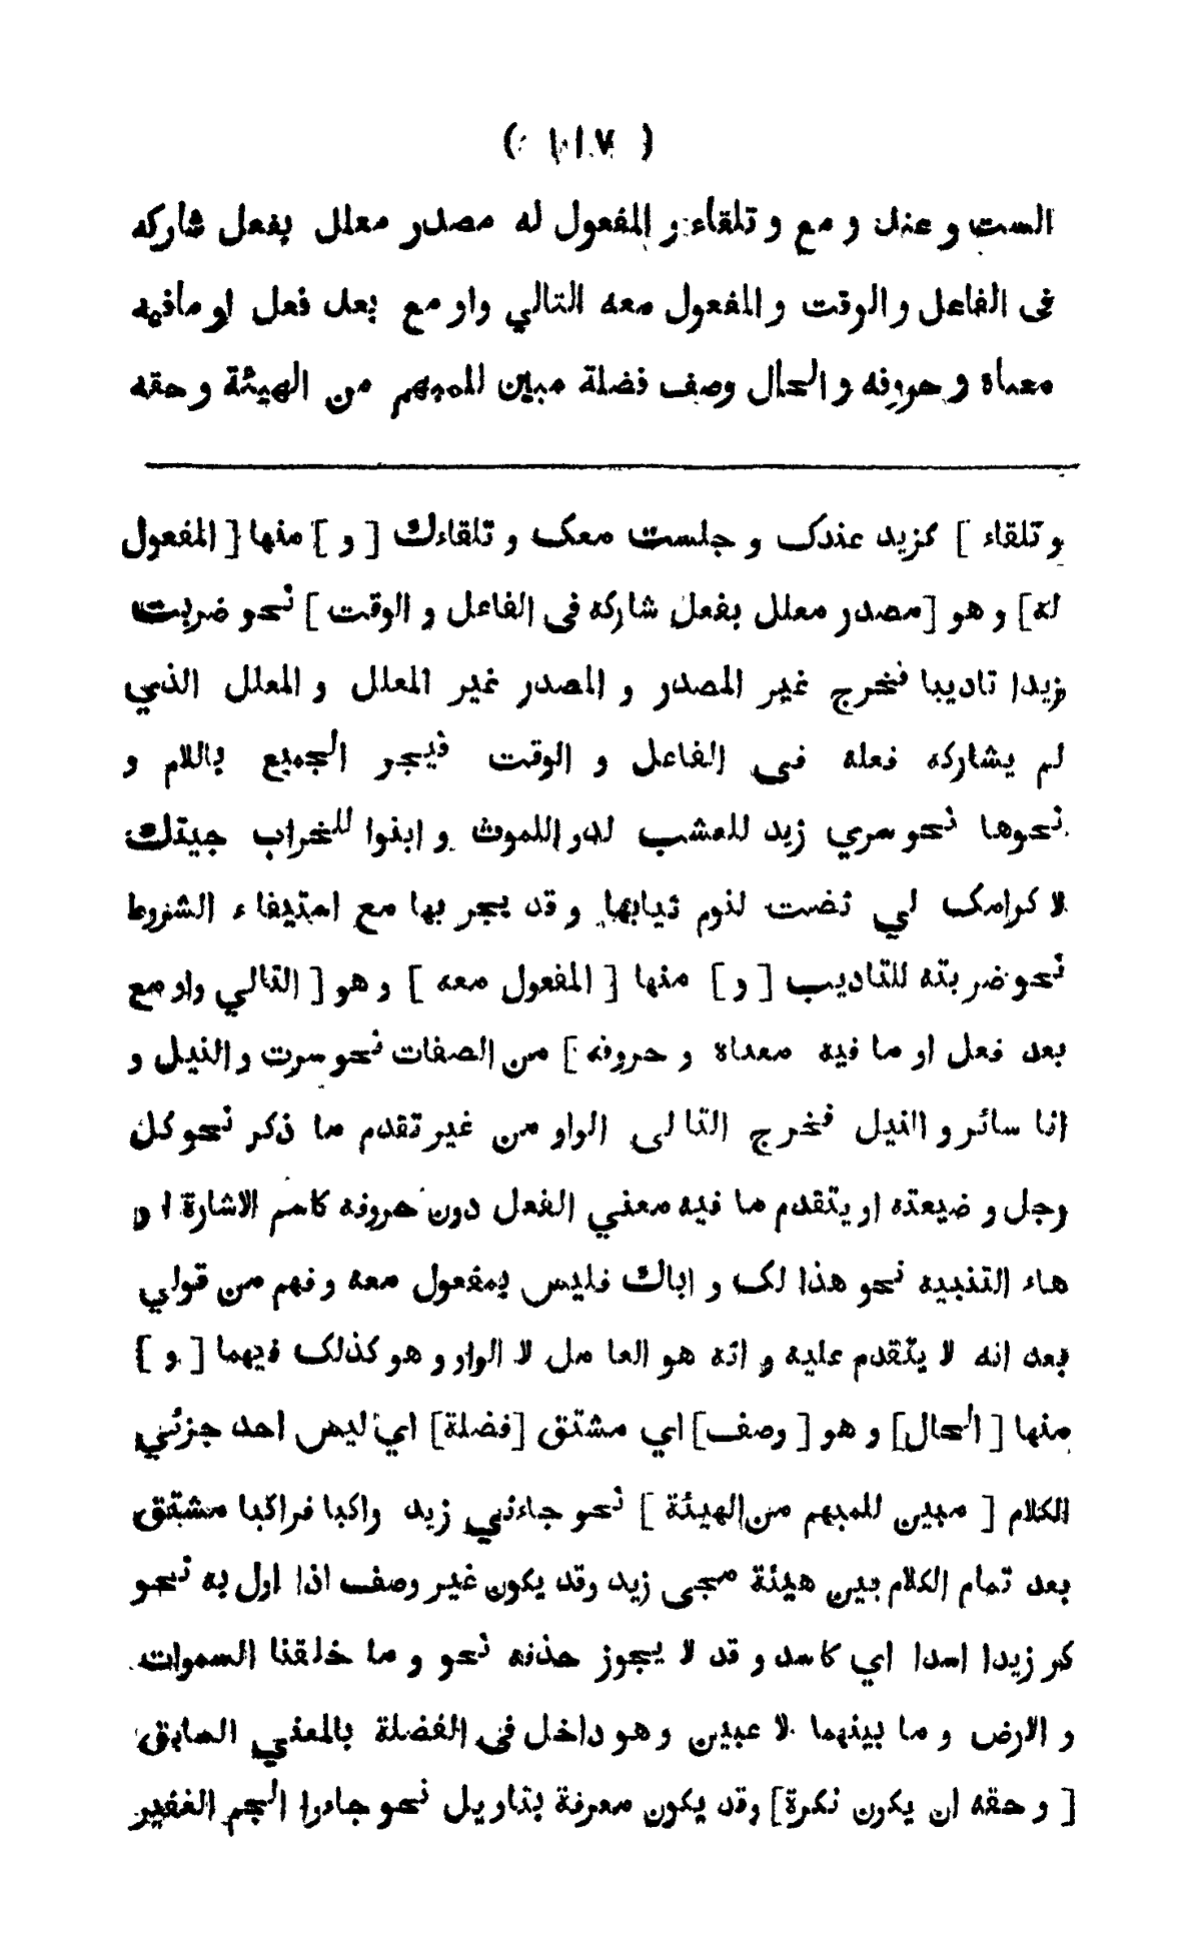 ( ١٠٧ )
الست و عند و مع و تلقاء و المفعول له مصدر معلل بفعل شاركه
فى الفاعل و الوقت و المفعول معه التالي واو مع بعد فعل او مافيه
معناه و حروفه و الحال وصف فضلة مبين للمبهم من الهيئة و حقه
و تلقاء ] كزيد عندك و جلست معك و تلقاءك [ و ] منها [ المفعول
له ] و هو [ مصدر معلل بفعل شاركه فى الفاعل و الوقت ] نحو ضربت
زيدا تاديبا فخرج غير المصدر و المصدر غير المعلل و المعلل الذي
لم يشاركه فعله فى الفاعل و الوقت فيجر الجميع باللام و
نحوها نحو سري زيد للعشب لدوا للموت و ابنوا للخراب جيتك
لاكرامك لي نضت لنوم ثيابها و قد يجر بها مع استيفاء الشروط
نحو ضربته للتاديب [ و ] منها [ المفعول معه ] و هو [ التالي واو مع
بعد فعل او ما فيه معناه و حروفه ] من الصفات نحو سرت و النيل و
انا سائر و النيل فخرج التالى الواو من غير تقدم ما ذكر نحو كل
رجل و ضيعته او يتقدم ما فيه معني الفعل دون حروفه كاسم الاشارة او
هاء التنبيه نحو هذا لك و اباك فليس بمفعول معه و فهم من قولي
بعد انه لا يتقدم عليه و انه هو العامل لا الواو و هو كذلك فيهما [ و ]
منها [ الحال ] و هو [ وصف ] اي مشتق [ فضلة ] اي ليس احد جزئي
الكلام [ مبين للمبهم من الهيئة ] نحو جاءني زيد راكبا فراكبا مشتق
بعد تمام الكلام بين هيئة مجى زيد وقد يكون غير وصف اذا اول به نحو
كر زيدا اسدا اي كاسد و قد لا يجوز حذفه نحو و ما خلقنا السموات
و الارض و ما بينهما لاعبين و هو داخل فى الفضلة بالمعني السابق
[ و حقه ان يكون نكرة ] وقد يكون معرفة بتاويل نحو جاءوا الجم الغفير